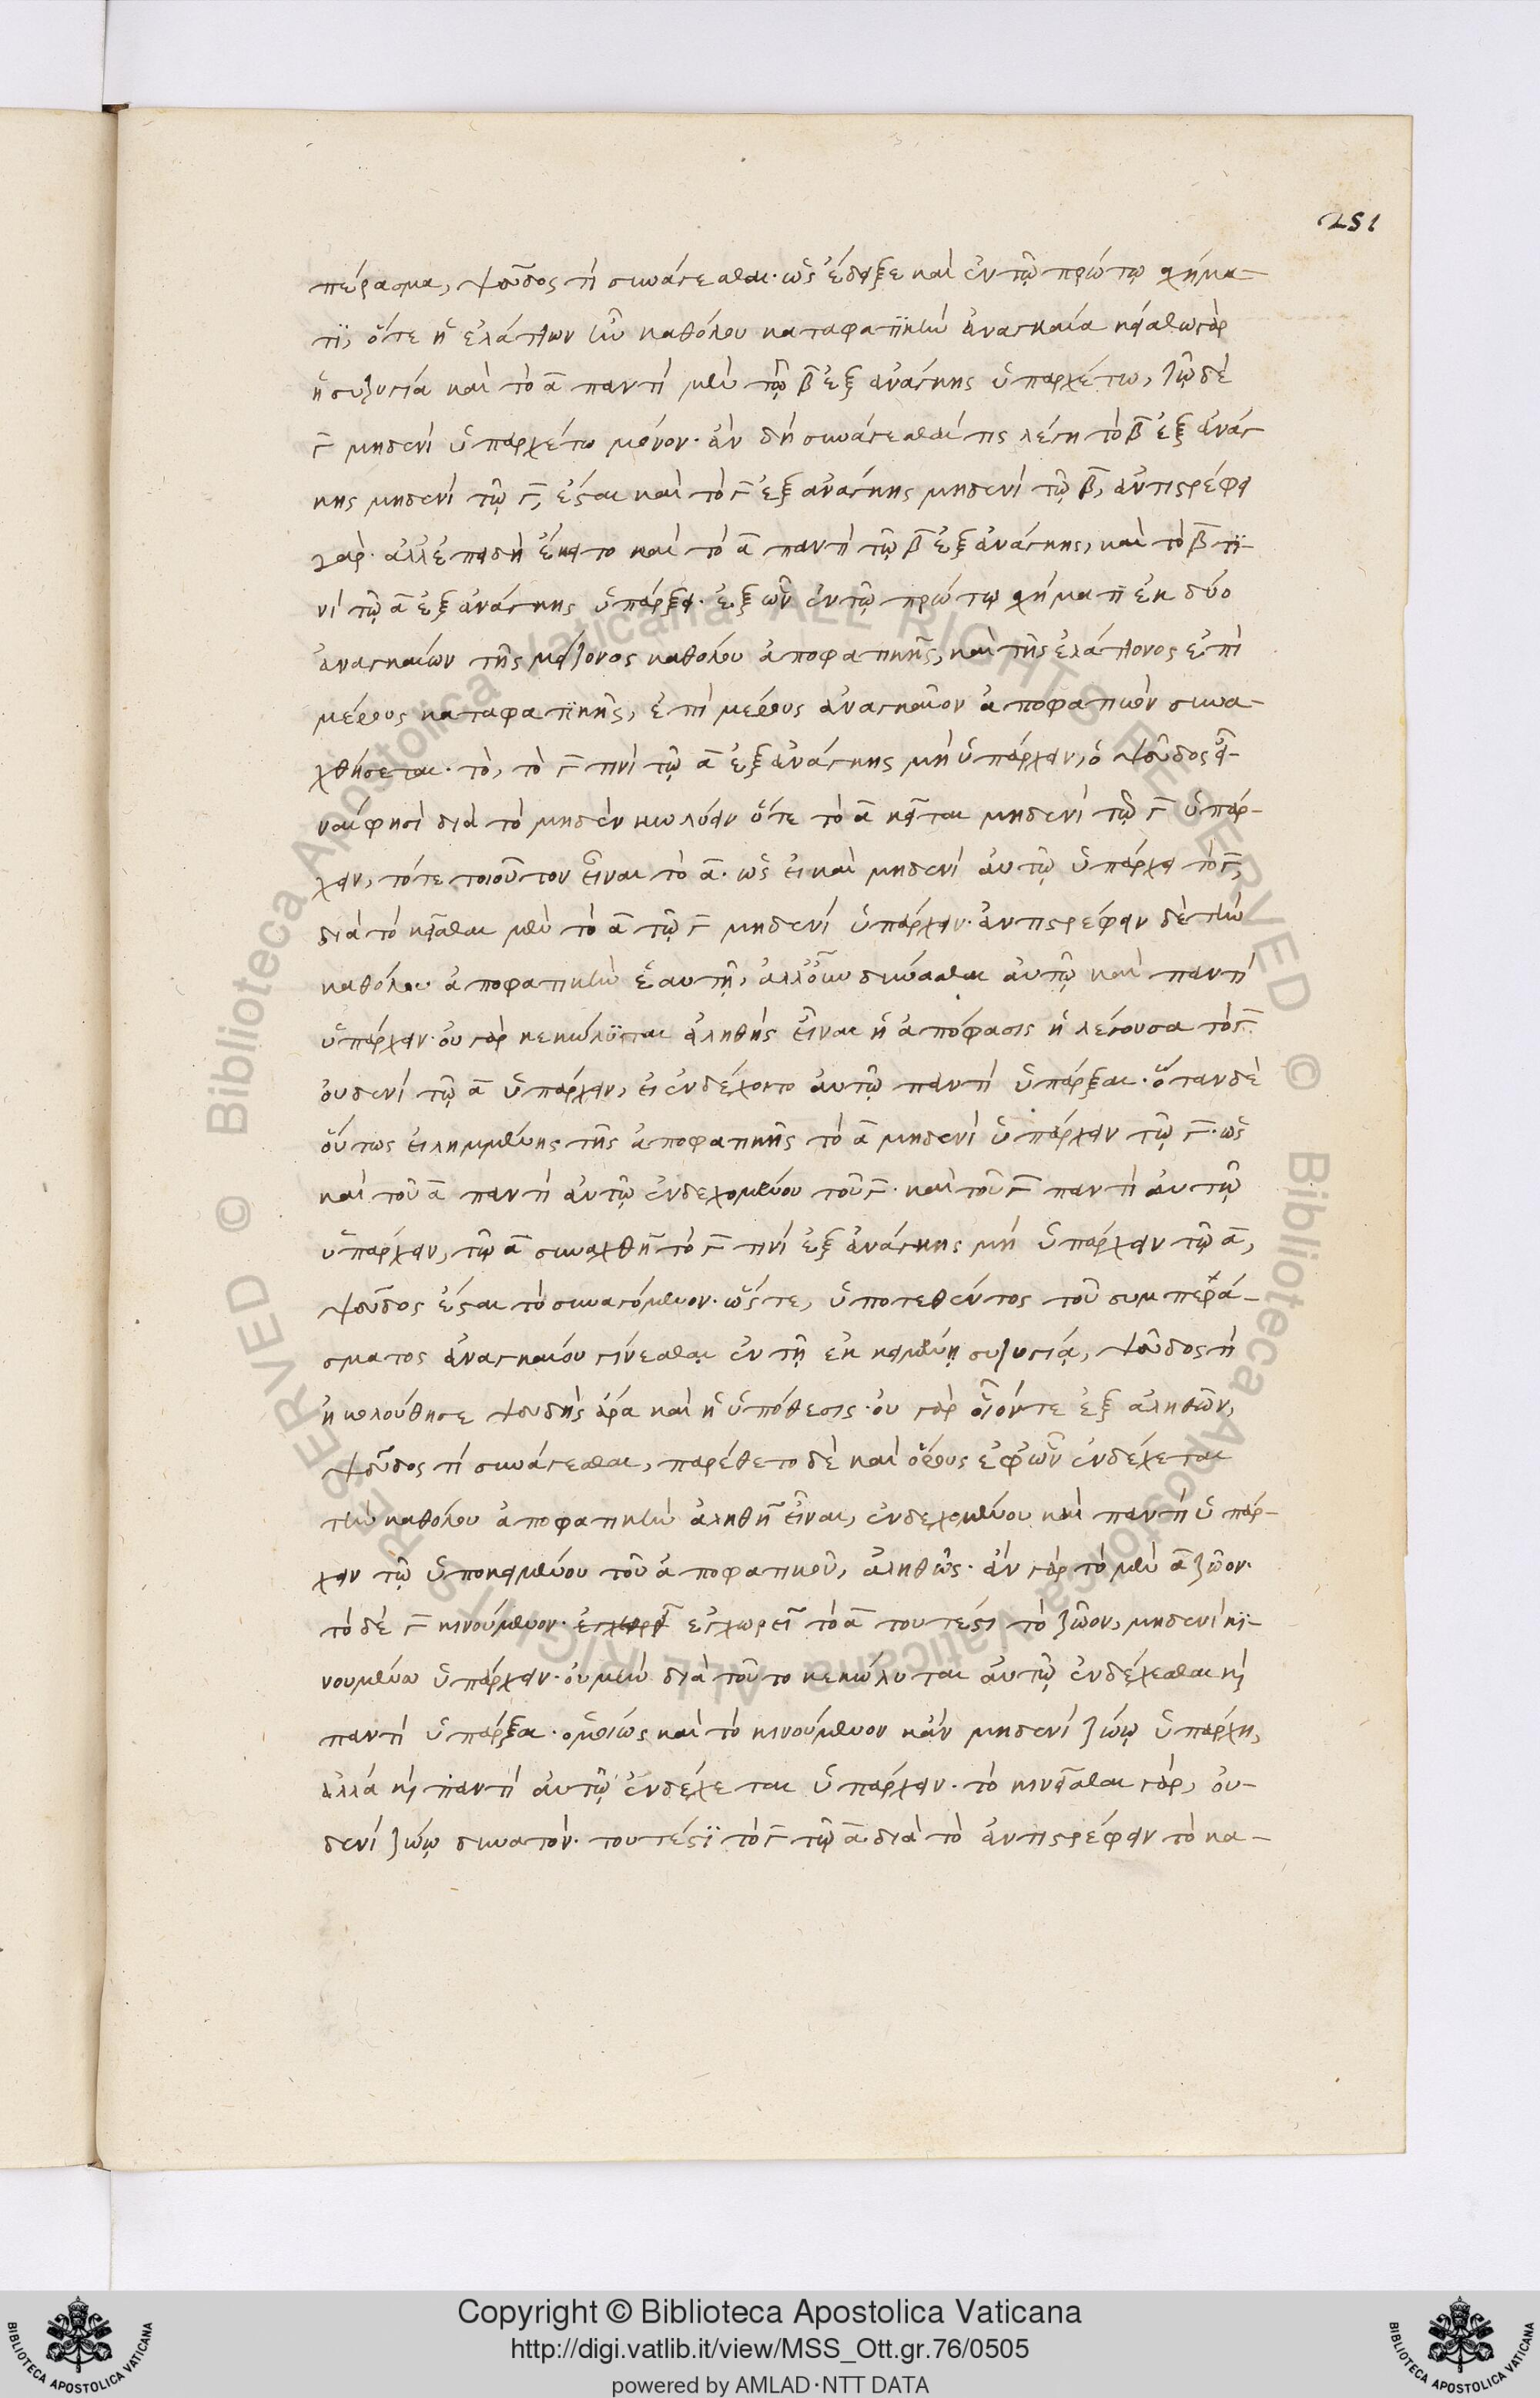 251
πέρασμα, ψεῦδος τὶ συνάγεσθαι. ὡς ἔδειξε καὶ ἐν τῷ πρώτῳ σχήμα-
τι, ὅτε ἡ ἐλάττων ἦν καθόλου καταφατικὴ ἀναγκαία κείσθω γὰρ
ἡ συζυγία καὶ τὸ α παντὶ μὲν τῷ β ἐξ ἀνάγκης ὑπαρχέτω, τῷ δὲ
γ μηδενὶ ὑπαρχέτω μόνον. ἂν δὴ συνάγεσθαί τις λέγη τὸ β ἐξ ἀνάγ
κης μηδενὶ τῷ γ, ἔσται καὶ τὸ γ ἐξ ἀνάγκης μηδενὶ τῷ β, ἀντιστρέφει
γάρ. ἀλλ' ἐπειδὴ ἔκειτο καὶ τὸ α παντὶ τῷ β ἐξ ἀνάγκης, καὶ τὸ β τι-
νὶ τῷ α ἐξ ἀνάγκης ὑπάρξει. ἐξ ὧν ἐν τῷ πρώτῳ σχήματι ἐκ δύο
ἀναγκαίων τῆς μείζονος καθόλου ἀποφατικῆς, καὶ τῆς ἐλάττονος ἐπὶ
μέρους καταφατικῆς, ἐπὶ μέρους ἀναγκαῖον ἀποφατικὸν συνα-
χθήσεται. τὸ, τὸ γ τινὶ τῷ α ἐξ ἀνάγκης μὴ ὑπάρχειν, ὁ ψεῦδος εἶ-
ναί φησι διὰ τὸ μηδὲν κωλύειν ὅτε τὸ α κεῖται μηδενὶ τῷ γ ὑπάρ-
χειν, τότε τοιοῦτον εἶναι τὸ α. ὡς εἰ καὶ μηδενὶ αὐτῷ ὑπάρχει τὸ γ,
διὰ τὸ κεῖσθαι μὲν τὸ α τῷ γ μηδενὶ ὑπάρχειν. ἀντιστρέφειν δὲ τὴν
καθόλου ἀποφατικὴν ἑαυτῇ, ἀλλ' οὖν δύνασθαι αὐτῷ καὶ παντὶ
ὑπάρχειν. οὐ γὰρ κεκώλυται ἀληθὴς εἶναι ἡ ἀπόφασις ἡ λέγουσα τὸ γ
οὐδενὶ τῷ α ὑπάρχειν, εἰ ἐνδέχοιτο αὐτῷ παντὶ ὑπάρξαι. ὅταν δὲ
οὕτως εἰλημμένης τῆς ἀποφατικῆς τὸ α μηδενὶ ὑπάρχειν τῷ γ. ὡς
καὶ τοῦ α παντὶ αὐτῷ ἐνδεχομένου τοῦ γ. καὶ τοῦ γ παντὶ αὐτῷ
ὑπάρχειν, τῷ α συναχθῆ τὸ γ τινὶ ἐξ ἀνάγκης μὴ ὑπάρχειν τῷ α,
ψεῦδος ἔσται τὸ συναγόμενον. ὥστε, ὑποτεθέντος τοῦ συμπερά-
σματος ἀναγκαίου γίνεσθαι ἐν τῇ ἐκκειμένῃ συζυγίᾳ, ψεῦδος τὶ
ἠκολούθησε ψευδὴς ἄρα καὶ ἡ ὑπόθεσις. οὐ γὰρ οἷόν τε ἐξ ἀληθῶν,
ψεῦδος τὶ συνάγεσθαι, παρέθετο δὲ καὶ ὅρους ἐφ' ὧν ἐνδέχεται
τὴν καθόλου ἀποφατικὴν ἀληθῆ εἶναι, ἐνδεχομένου καὶ παντὶ ὑπάρ-
χειν τῷ ὑποκειμένου τοῦ ἀποφατικοῦ, ἀληθῶς. ἂν γὰρ τὸ μὲν α ζῷον.
τὸ δὲ γ κινούμενον. ἐγχωρεῖ τὸ α τουτέστι τὸ ζῷον, μηδενὶ κι-
νουμένω ὑπάρχειν. οὐ μὴν διὰ τοῦτο κεκώλυται αὐτῷ ἐνδέχεσθαι καὶ
παντὶ ὑπάρξαι. ὁμοίως καὶ τὸ κινούμενον κἂν μηδενὶ ζώῳ ὑπάρχη,
ἀλλὰ καὶ παντὶ αὐτῷ ἐνδέχεται ὑπάρχειν. τὸ κινεῖσθαι γὰρ, οὐ-
δενὶ ζώῳ δυνατόν. τουτέστι τὸ γ τῷ α. διὰ τὸ ἀντιστρέφειν τὸ κα-
Copyright © Biblioteca Apostolica Vaticana
http://digi.vatlib.it/view/MSS_Ott.gr.76/0505
powered by AMLAD·NTT DATA